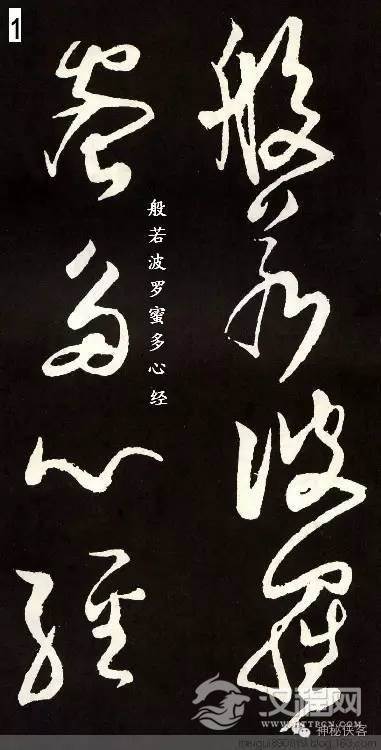 1
般若波羅
蜜多心經
般若波罗蜜多心经
汉程网
WWW.HTTPCN.COM
神秘侠客